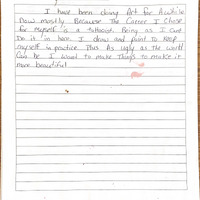 I have been doing Art for Awhile
now mostly Because The Career I Chose
for myself is a tattooist. Being as I cant
Do it in here I draw and paint to keep
myself in practice. Plus As ugly as The world
Can be I want to make Things to make it
more beautiful